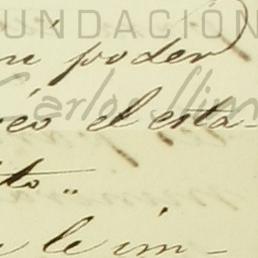 FUNDACIÓN
mi poder
Carlos Slim
reo el esta-
to"
a le im-